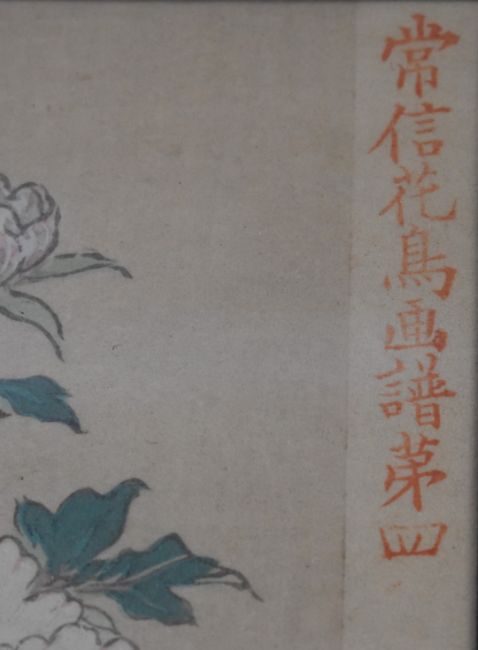 常信花鳥画譜苐四